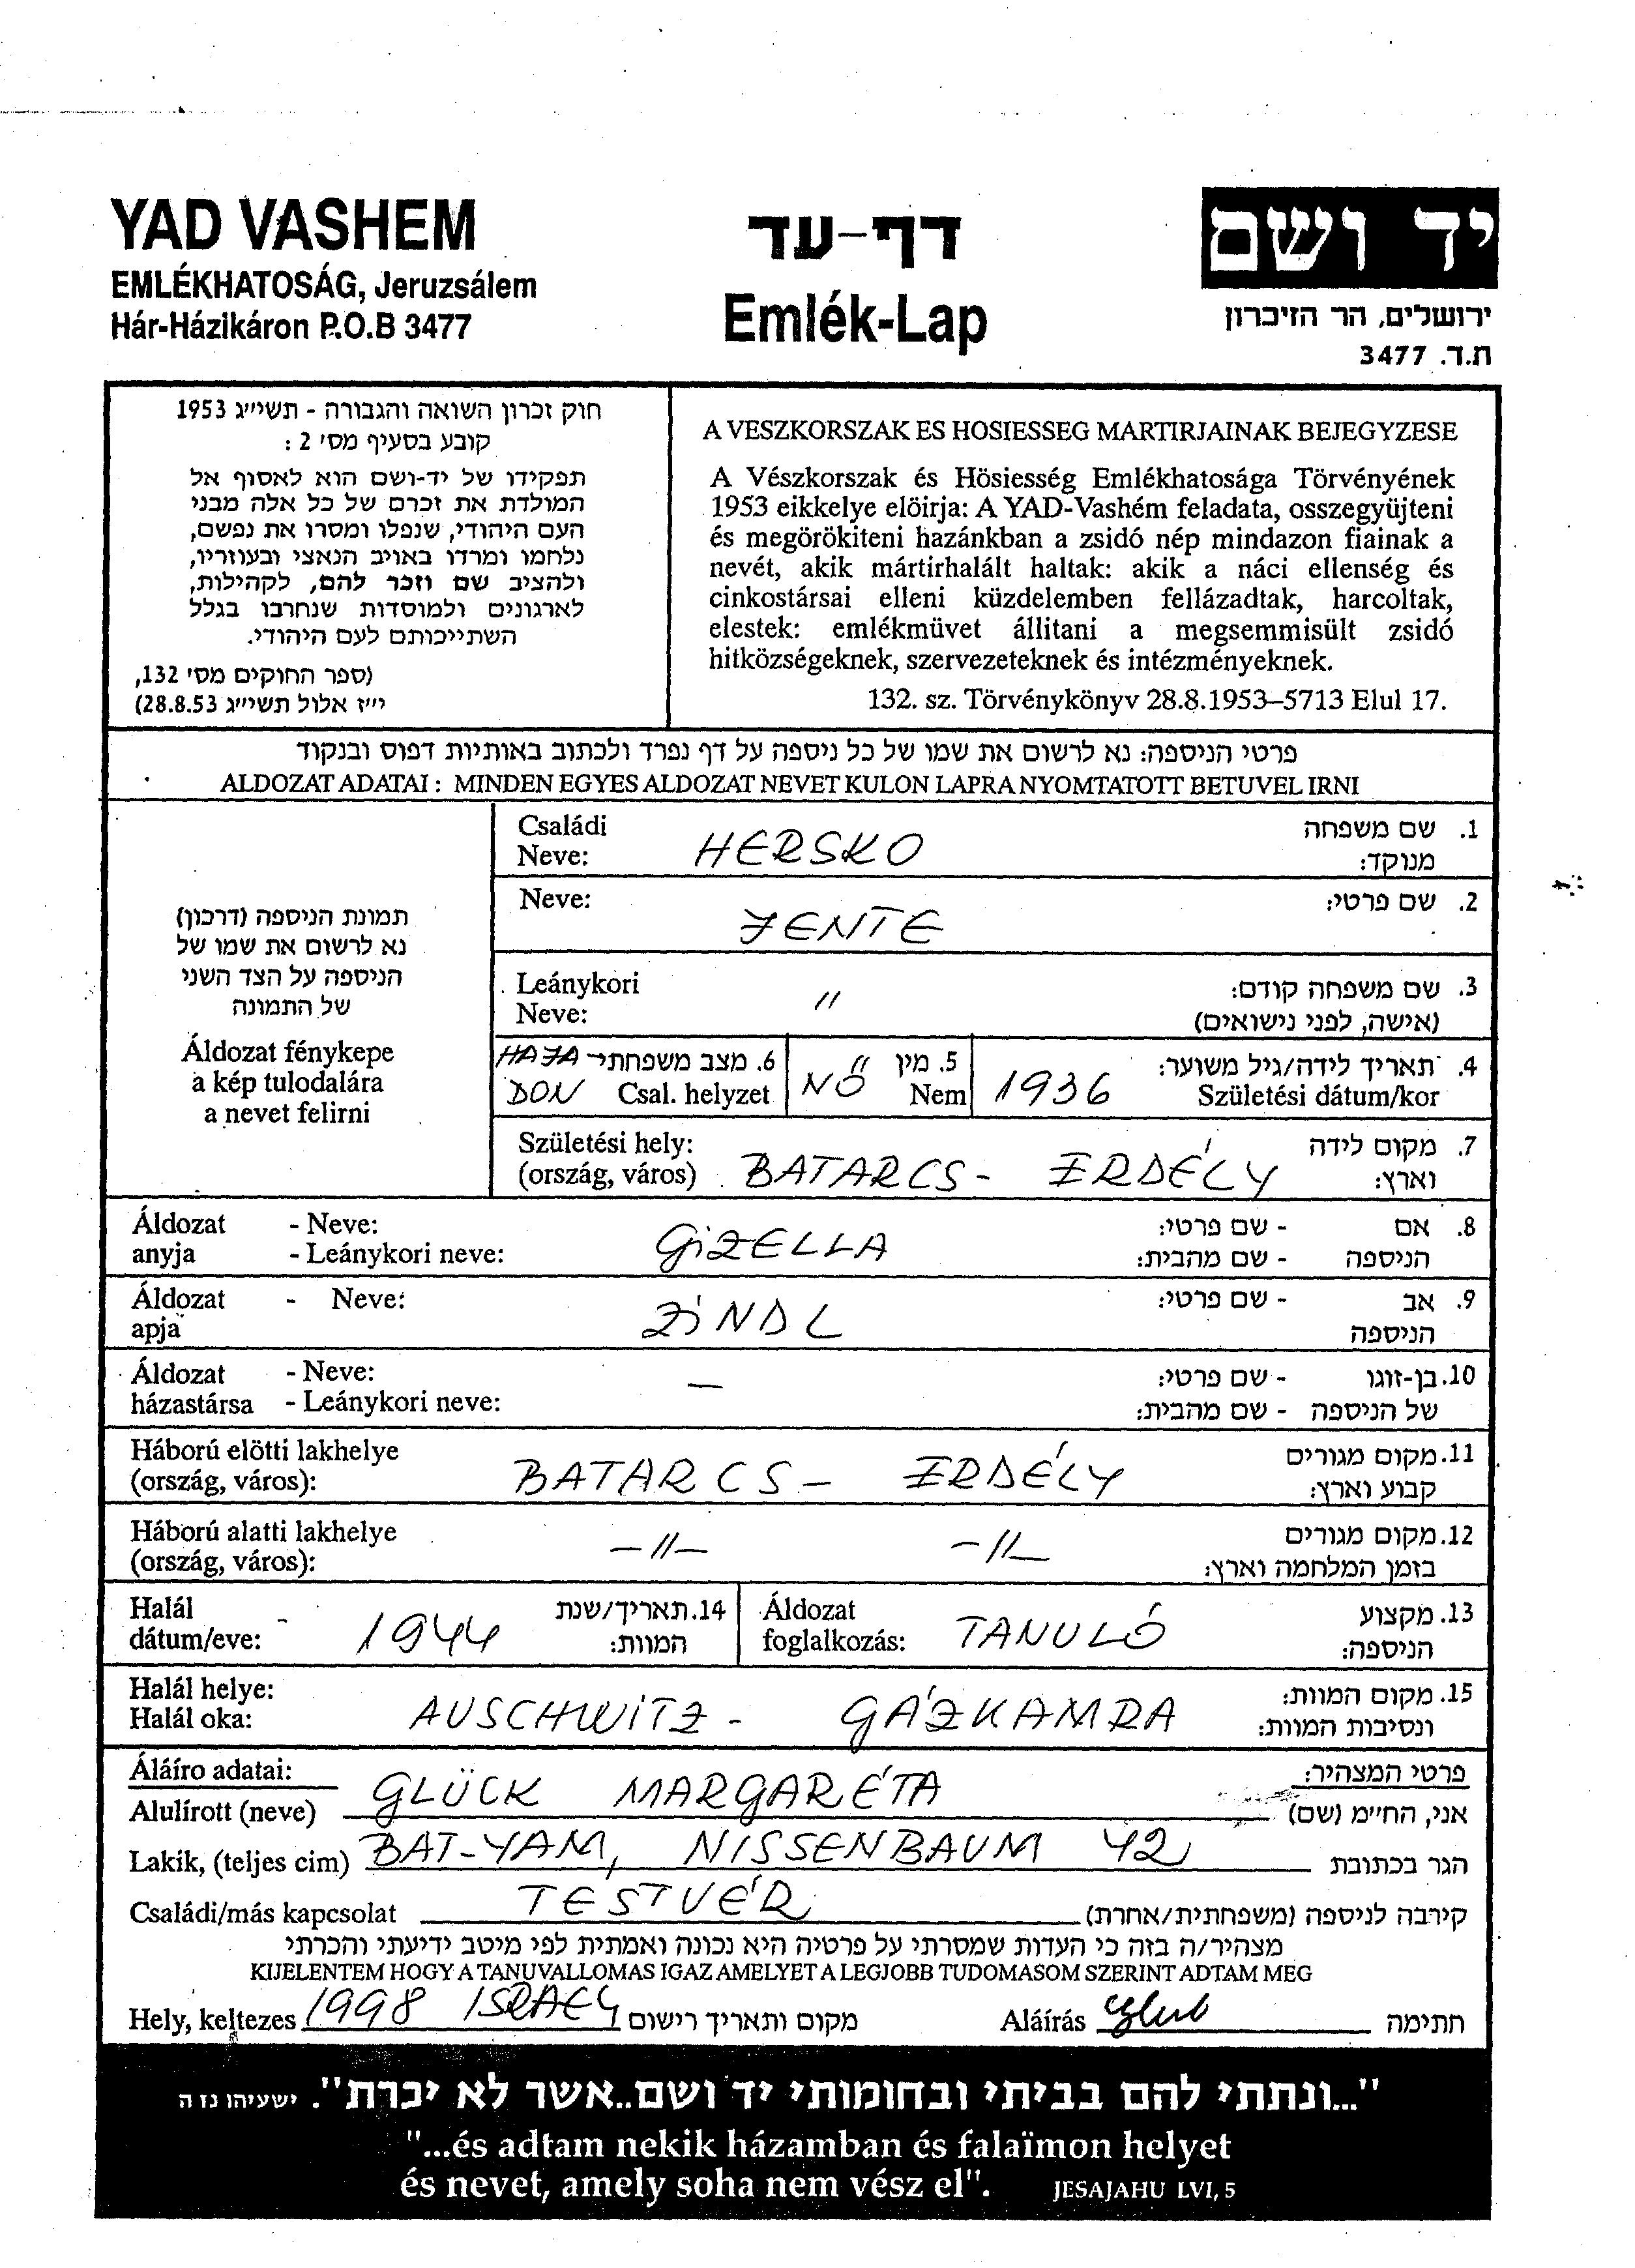 YAD VASHEM
EMLÉKHATOSÁG, Jeruzsálem
Hár-Házikáron P.O.B 3477
דף-עד
Emlék-Lap
יד ושם
ירושלים, הר הזיכרון
ת.ד. 3477
חוק זכרון השואה והגבורה - תשי״ג 1953
קובע בסעיף מס׳ 2 :
תפקידו של יד-ושם הוא לאסוף אל
המולדת את זכרם של כל אלה מבני
העם היהודי, שנפלו ומסרו את נפשם,
נלחמו ומרדו באויב הנאצי ובעוזריו,
ולהציב שם וזכר להם, לקהילות,
לארגונים ולמוסדות שנחרבו בגלל
השתייכותם לעם היהודי.
(ספר החוקים מס׳ 132,
י״ז אלול תשי״ג 28.8.53)
A VESZKORSZAK ES HOSIESSEG MARTIRJAINAK BEJEGYZESE
A Vészkorszak és Hösiesség Emlékhatosága Törvényének
1953 eikkelye elöirja: A YAD-Vashém feladata, osszegyüjteni
és megörökiteni hazánkban a zsidó nép mindazon fiainak a
nevét, akik mártirhalált haltak: akik a náci ellenség és
cinkostársai elleni küzdelemben fellázadtak, harcoltak,
elestek: emlékmüvet állitani a megsemmisült zsidó
hitközségeknek, szervezeteknek és intézményeknek.
132. sz. Törvénykönyv 28.8.1953–5713 Elul 17.
פרטי הניספה: נא לרשום את שמו של כל ניספה על דף נפרד ולכתוב באותיות דפוס ובנקוד
ALDOZAT ADATAI : MINDEN EGYES ALDOZAT NEVET KULON LAPRA NYOMTATOTT BETUVEL IRNI
תמונת הניספה (דרכון)
נא לרשום את שמו של
הניספה על הצד השני
של התמונה
Áldozat fénykepe
a kép tulodalára
a nevet felirni
Családi 1. שם משפחה
Neve: HERSKO מנוקד:
Neve: JENTE 2. שם פרטי:
Leánykori 3. שם משפחה קודם:
Neve: " (אישה, לפני נישואים)
HAJA- 6. מצב משפחתי 5. מין 4. תאריך לידה/גיל משוער:
DON Csal. helyzet NŐ Nem 1936 Születési dátum/kor
Születési hely: 7. מקום לידה
(ország, város) BATARCS - ERDÉLY וארץ:
Áldozat - Neve: 8. אם - שם פרטי:
anyja - Leánykori neve: GIZELLA הניספה - שם מהבית:
Áldozat - Neve: 9. אב - שם פרטי:
apja ZINDL הניספה
Áldozat - Neve: 10. בן-זוגו - שם פרטי:
házastársa - Leánykori neve: — של הניספה - שם מהבית:
Háború elötti lakhelye 11. מקום מגורים
(ország, város): BATARCS - ERDÉLY קבוע וארץ:
Háború alatti lakhelye 12. מקום מגורים
(ország, város): —"— —"— בזמן המלחמה וארץ:
Halál 14. תאריך/שנת Áldozat 13. מקצוע
dátum/eve: 1944 המוות: foglalkozás: TANULÓ הניספה:
Halál helye: 15. מקום המוות:
Halál oka: AUSCHWITZ - GÁZKAMRA ונסיבות המוות:
Áláíro adatai: פרטי המצהיר:
Alulírott (neve) GLÜCK MARGARÉTA אני, החי״מ (שם)
Lakik, (teljes cim) BAT-YAM, NISSENBAUM 42 הגר בכתובת
Családi/más kapcsolat TESTVÉR קירבה לניספה (משפחתית/אחרת)
מצהיר/ה בזה כי העדות שמסרתי על פרטיה היא נכונה ואמתית לפי מיטב ידיעתי והכרתי
KIJELENTEM HOGY A TANUVALLOMAS IGAZ AMELYET A LEGJOBB TUDOMASOM SZERINT ADTAM MEG
Hely, keltezes 1998 ISRAEL מקום ותאריך רישום Aláírás חתימה
"...ונתתי להם בביתי ובחומותי יד ושם..אשר לא יכרת". ישעיהו נז ה
"...és adtam nekik házamban és falaïmon helyet
és nevet, amely soha nem vész el". JESAJAHU LVI, 5